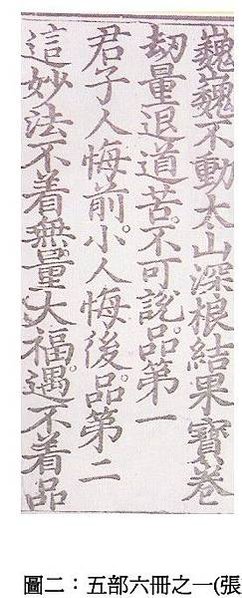 巍巍不動太山深根結果寶卷
劫量退道苦。不可說品第一
君子人悔前。小人悔後。品第二
這妙法不着無量大福。遇不着品
圖二：五部六冊之一(張